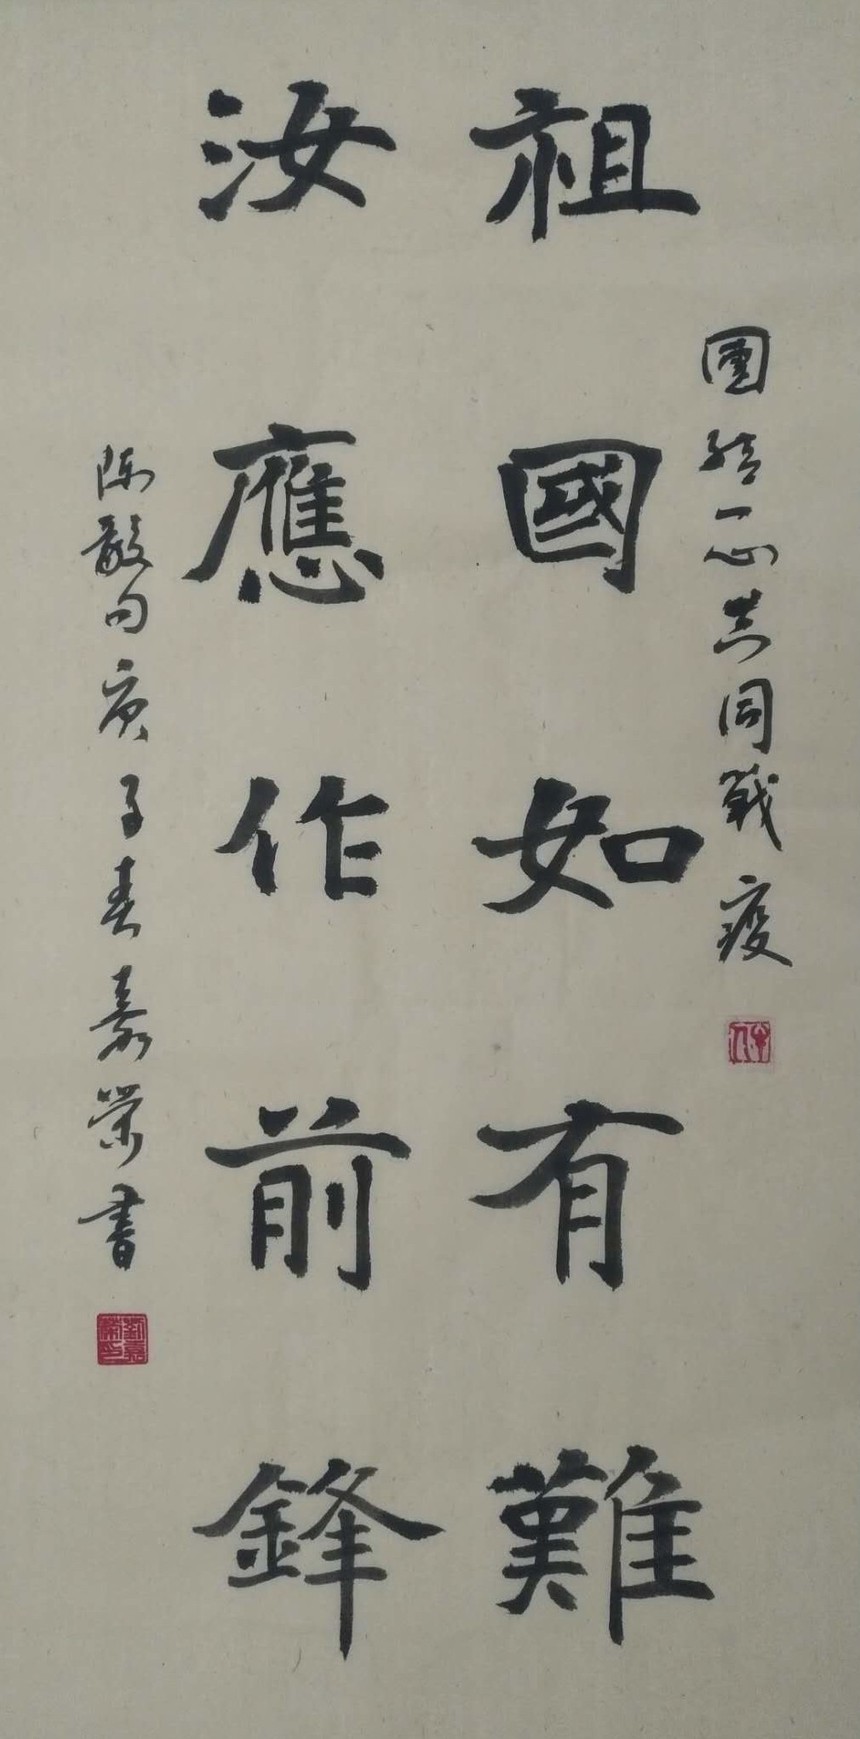 團結一心共同戰疫
祖國如有難
汝應作前鋒
陳毅句庚子春嘉榮書
劉嘉榮印